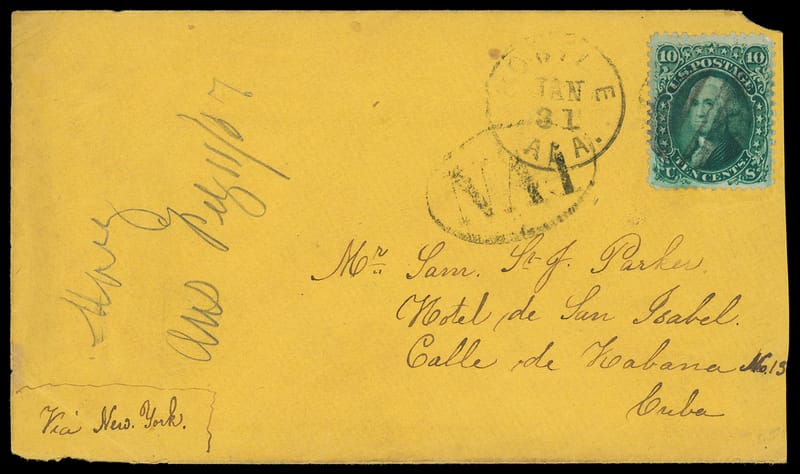 10 10
U.S. POSTAGE
TEN CENTS
U S
MOBILE
JAN
31
ALA.
NA1
Mr. Sam. St. J. Parker.
Hotel de San Isabel.
Calle de Habana No. 13
Cuba
Via New. York.
ans